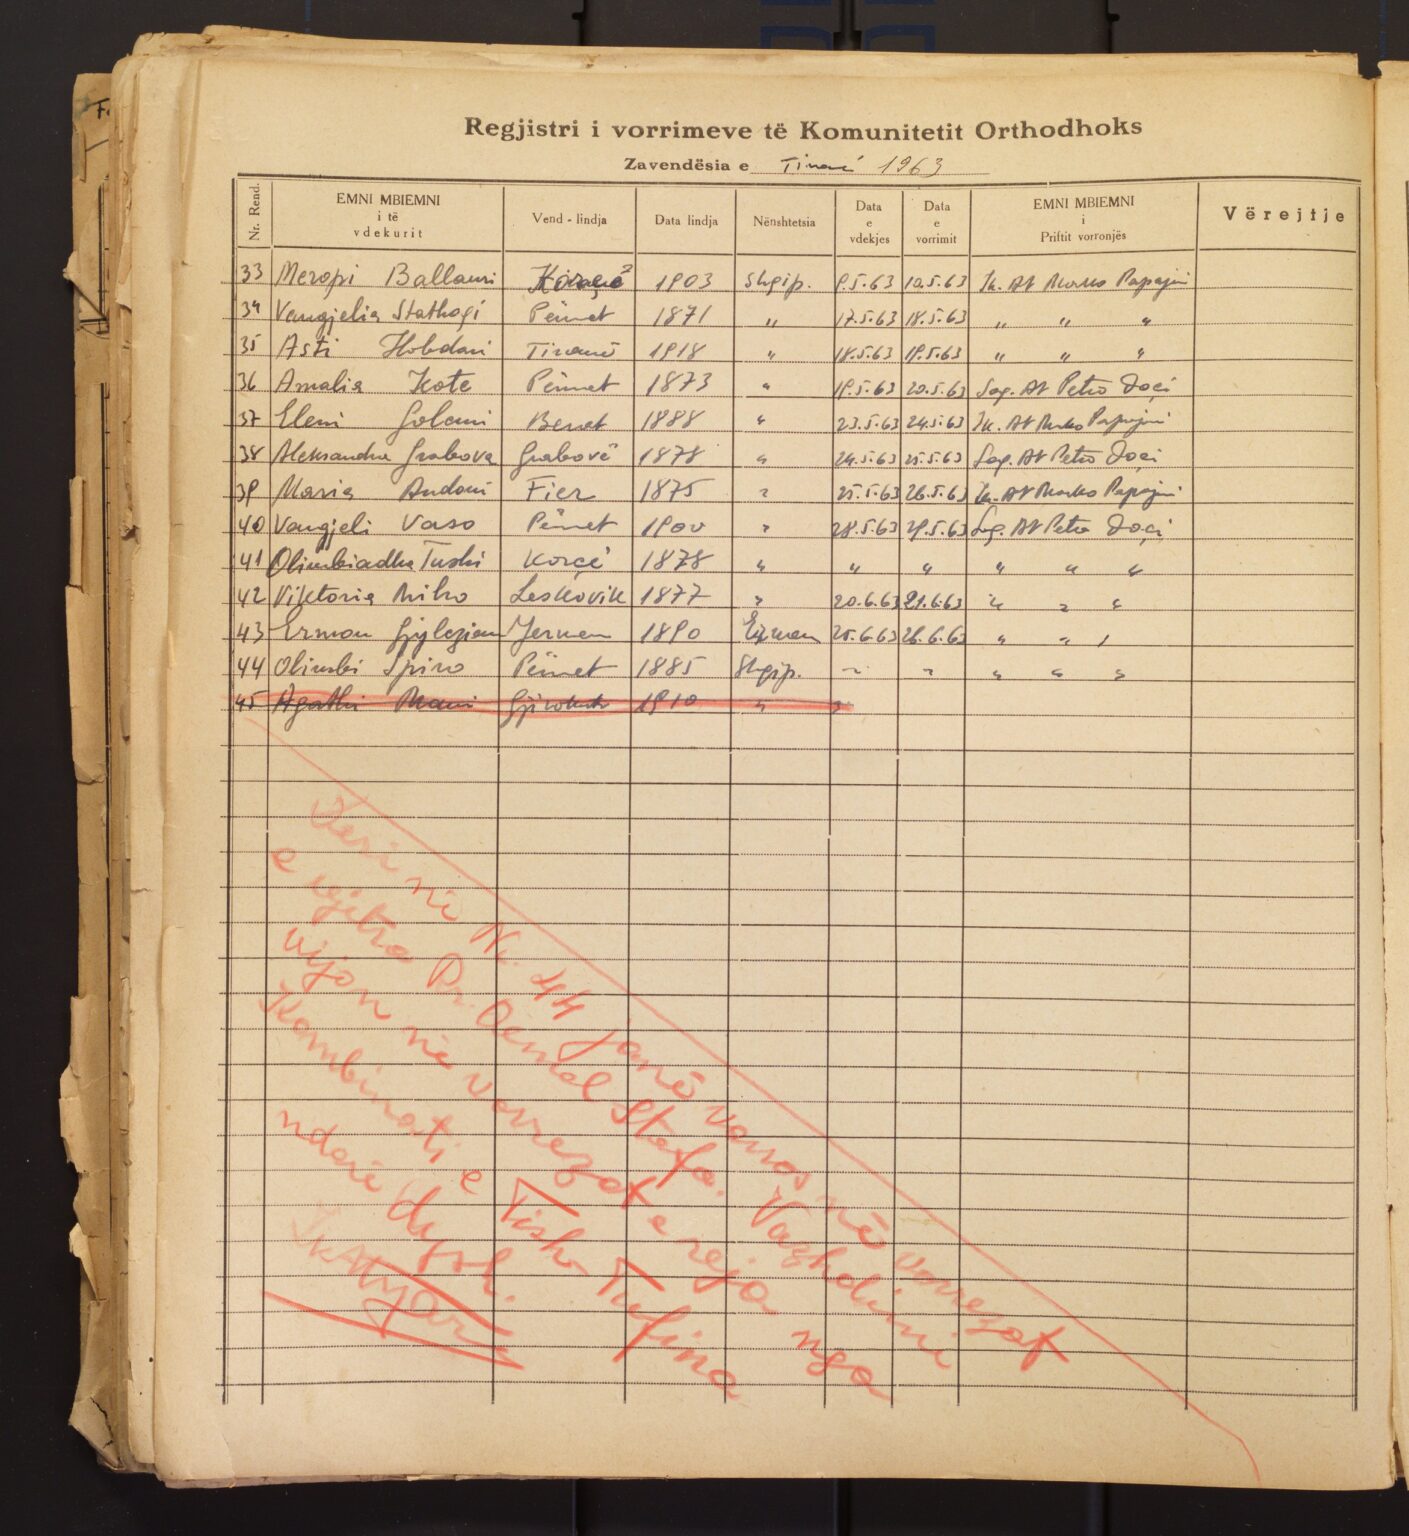 Regjistri i vorrimeve të Komunitetit Orthodhoks
Zavendësia e Tiranë 1963
Nr. Rend. EMNI MBIEMNI i të vdekurit Vend - lindja Data lindja Nënshtetsia Data e vdekjes Data e vorrimit EMNI MBIEMNI i Priftit vorronjës Vërejtje
33 Meropi Ballauri 1903 Shqip. 9.5.63 10.5.63 Ik. At Marko Papajni
34 Vangjelia Stathogi Përmet 1871 " 17.5.63 18.5.63 " " "
35 Asti Hobdari Tiranë 1918 " 18.5.63 19.5.63 " " "
36 Amalia Kote Përmet 1873 " 19.5.63 20.5.63 At Petro Doçi
37 Eleni Golemi Berat 1888 " 23.5.63 24.5.63 Ik. At Marko Papajni
38 Aleksandra Grabova Grabovë 1878 " 24.5.63 25.5.63 At Petro Doçi
39 Maria Andoni Fier 1875 " 25.5.63 26.5.63 Ik. At Marko Papajni
40 Vangjeli Vaso Përmet 1900 " 28.5.63 29.5.63 At Petro Doçi
41 Olimbiadha Tushi Korçë 1878 " " " " " "
42 Viktoria Miho Leskovik 1877 " 20.6.63 21.6.63 " " "
43 Ermon 1890 25.6.63 26.6.63 " " "
44 Olimbi Spiro Përmet 1885 Shqip. " " " " "
45 Agathi Mani Gjirokastr 1910 " "
Deri në Nr. 44 janë varros në Vorrezat
e vjetra Pr. Qemal Stafa. Vazhdimi
vijon në Vorrezat e reja nga
Kombinati e Tish Tufina
ndarë dysh.